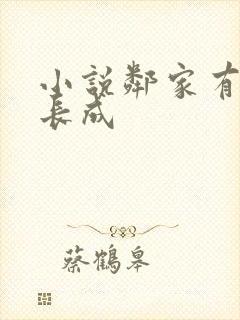 小說鄰家有
長成
蔡鶴皋